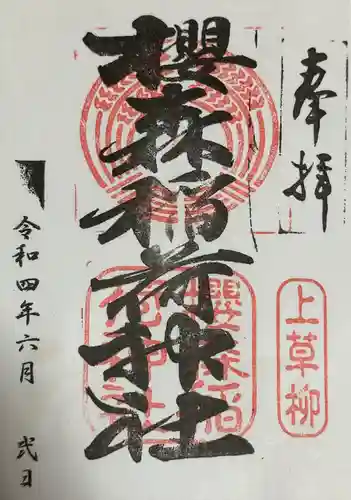 奉拝
上草柳
櫻森稲荷神社
櫻森稲
荷神社
令和四年六月 弐日